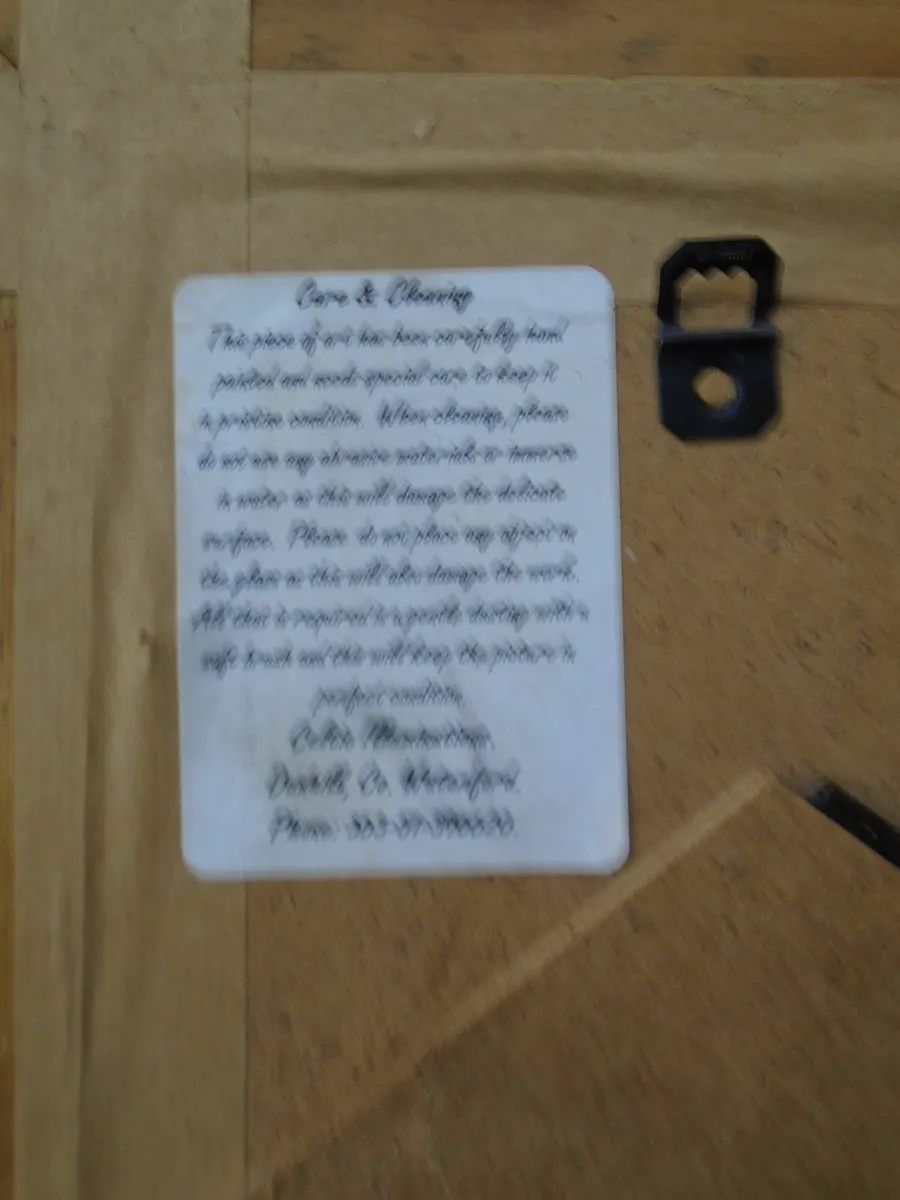 Care & Cleaning
This piece of art has been carefully hand
painted and needs special care to keep it
in pristine condition. When cleaning, please
do not use any abrasive materials or immerse
in water as this will damage the delicate
surface. Please do not place any object on
the glass as this will also damage the work.
All that is required is a gentle dusting with a
soft brush and this will keep the picture in
perfect condition
Celtic Illuminations,
Co. Waterford.
Phone: